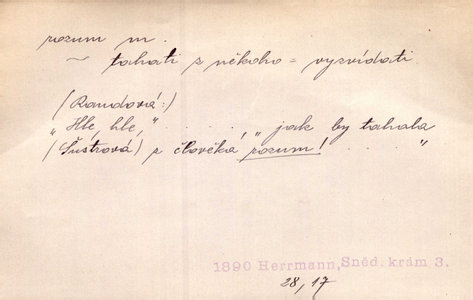 rozum m.
~ tahati z někoho = vyzvídati
(Randová:)
„Hle, hle," ......, „jak by tahala
(Šustrová) z člověka rozum! ....."
1890 Herrmann, Sněd. krám 3.
28, 17